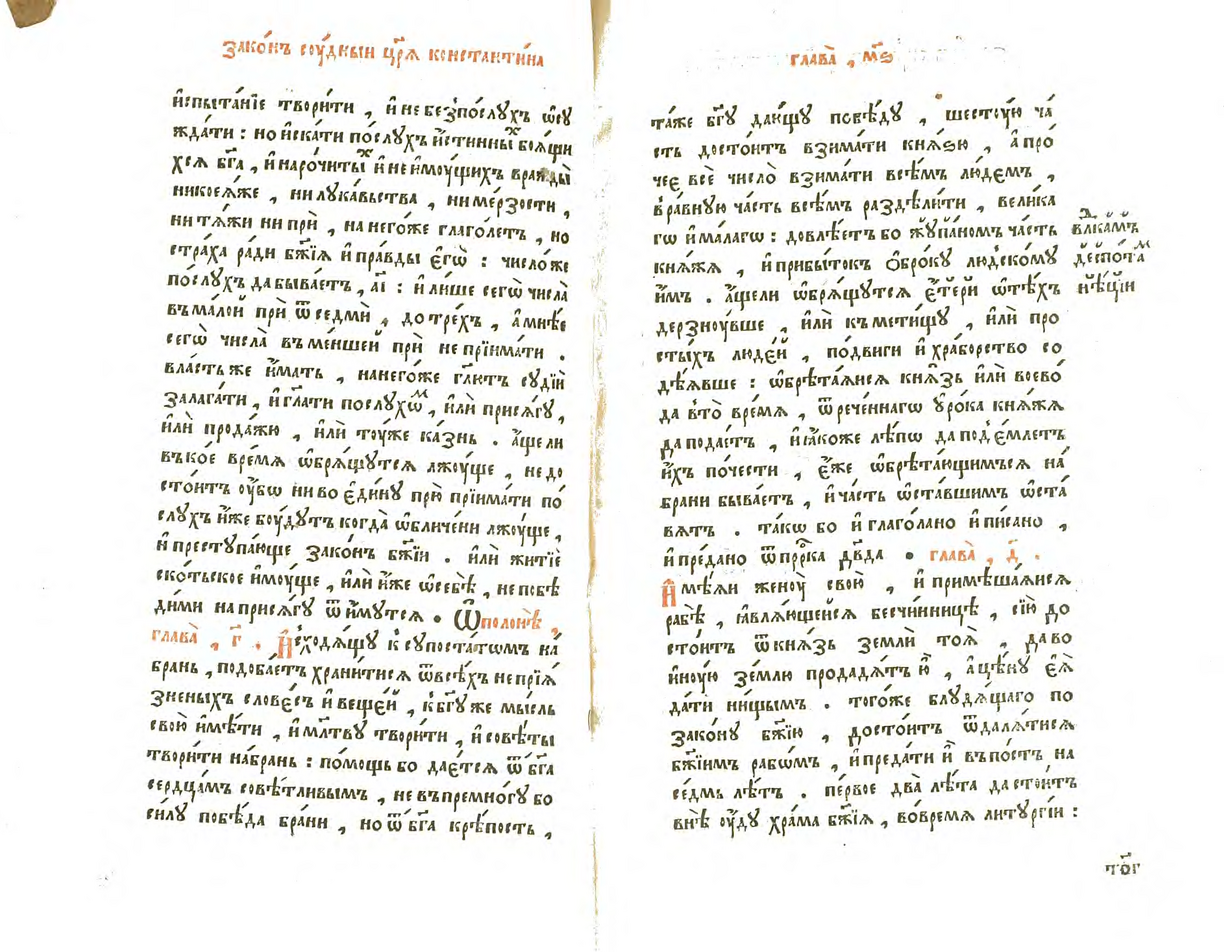 Зако́нъ соу́дныи цр҃ѧ константи́на
и҆спыта́нїе твори́ти , и҆ не безпо́слухъ ѡ҆су
жда́ти : но и҆ска́ти по́слухъ и҆́стинныⷯ боѧ́щи
хсѧ бг҃а , и҆ наро́читыⷯ и҆ неи҆моу́щихъ вражды̀
никоеѧ́же , ни лука́вьства , ни ме́рзости ,
ни тѧ́жи ни прѝ , на него́же глаго́летъ , но
стра́ха ра́ди бж҃їѧ и҆ пра́вды є҆гѡ̀ : число́же
по́слухъ да быва́етъ , а҃і : и҆ ли́ше сегѡ̀ числа̀
въ ма́лой прѝ ѿ седмѝ , до тре́хъ , а҆ мнѣ́е
сегѡ̀ числа̀ въ ме́ншей прѝ не прїима́ти .
вла́сть же и҆́мать , на него́же гл҃итъ судїи̑
залага́ти , и҆ гл҃ати послухѡ́ⷨ , и҆лѝ присѧ́гу ,
и҆лѝ прода́жю , и҆лѝ тоу́же ка́знь . а҆́ще ли
въ ко́е вре́мѧ ѡ҆брѧ́щутсѧ лжоу́ще , не до
сто́итъ оу҆́бѡ ни во є҆ди́ну прю̀ прїима́ти по́
слухъ и҆́же боу́дутъ когда̀ ѡ҆бличе́ни лжоу́ще ,
и҆ преступа́юще зако́нъ бж҃їи . и҆лѝ житїѐ
ско́тьское и҆моу́ще , и҆лѝ и҆́же ѡ҆ себѣ̀ , не побѣ
ди́ми на присѧ́гу ѿи́мутсѧ . Ѿ поло́нѣ ,
глава̀ , г҃ . И҆сходѧ́щу к супоста́тѡмъ на́
брань , подоба́етъ храни́тисѧ ѿ всѣ́хъ непрїѧ́
зненыхъ слове́съ и҆ веще́й , к бг҃у же мы́сль
свою̀ и҆мѣ́ти , и҆ мл҃тву твори́ти , и҆ совѣ́ты
твори́ти на́ брань : по́мощь бо дае́тсѧ ѿ бг҃а
сердца́мъ совѣ́тливымъ , не въ премно́гу бо
си́лу побѣ́да бра́ни , но ѿ бг҃а крѣ́пость ,
глава̀ , м҃ѕ
та́же бг҃у даю́щу побѣ́ду , шесту́ю ча́
сть досто́итъ взима́ти кнѧ́зю , а҆ про́
чее всѐ число̀ взима́ти всѣ́мъ лю́демъ ,
в ра́вную ча́сть всѣ́мъ раздѣли́ти , вели́ка
гѡ и҆ ма́лагѡ : довлѣ́етъ бо жу́паномъ ча́сть
кнѧ́жѧ , и҆ прибы́токъ о҆бро́ку лю́дскому
и҆̀мъ . а҆́ще ли ѡ҆брѧ́щутсѧ є҆́тери ѡ҆ тѣ́хъ
дерзноу́вше , и҆лѝ къ мети́щу , и҆лѝ про
сты́хъ люде́й , по́двиги и҆ хра́борство со
дѣ́ѧвше : ѡ҆брѣта́ѧисѧ кнѧ́зь и҆лѝ воево́
да в то̀ вре́мѧ , ѿ рече́ннагѡ у҆ро́ка кнѧ́жѧ
да пода́стъ , и҆ ꙗ҆́коже лѣ́пѡ да подъе́млетъ
и҆́хъ по́чести , є҆́же ѡ҆брѣта́ющимъсѧ на́
брани быва́етъ , и҆ ча́сть ѡ҆ста́вшимъ ѡ҆ста́
вѧтъ . та́кѡ бо и҆ глаго́лано и҆ пи́сано ,
и҆ пре́дано ѿ прⷪ҇рка дв҃да . глава̀ , д҃ .
И҆мѣ́ѧи женоу̀ свою̀ , и҆ примѣша́ѧисѧ
рабѣ̀ , ꙗ҆влѧ́ющейсѧ бесчи́нницѣ , сїю̀ до
сто́итъ ѿ кнѧ́зь землѝ тоѧ̀ , да во
и҆ну́ю зе́млю продадѧ́тъ ю҆̀ , а҆ цѣ́ну є҆ѧ̀
да́ти ни́щымъ . того́же блудѧ́щаго по
зако́ну бж҃їю , досто́итъ ѿдалѧ́тисѧ
бж҃їимъ рабѡ́мъ , и҆ преда́ти и҆̀ въ по́стъ на
се́дмь лѣ́тъ . пе́рвое два̀ лѣ́та да стои́тъ
внѣ̀ оу҆́ду хра́ма бж҃їѧ , во вре́мѧ литургі́и :
влⷣкамъ
де́спотаⷨ
нѣ́цїи
то҃г